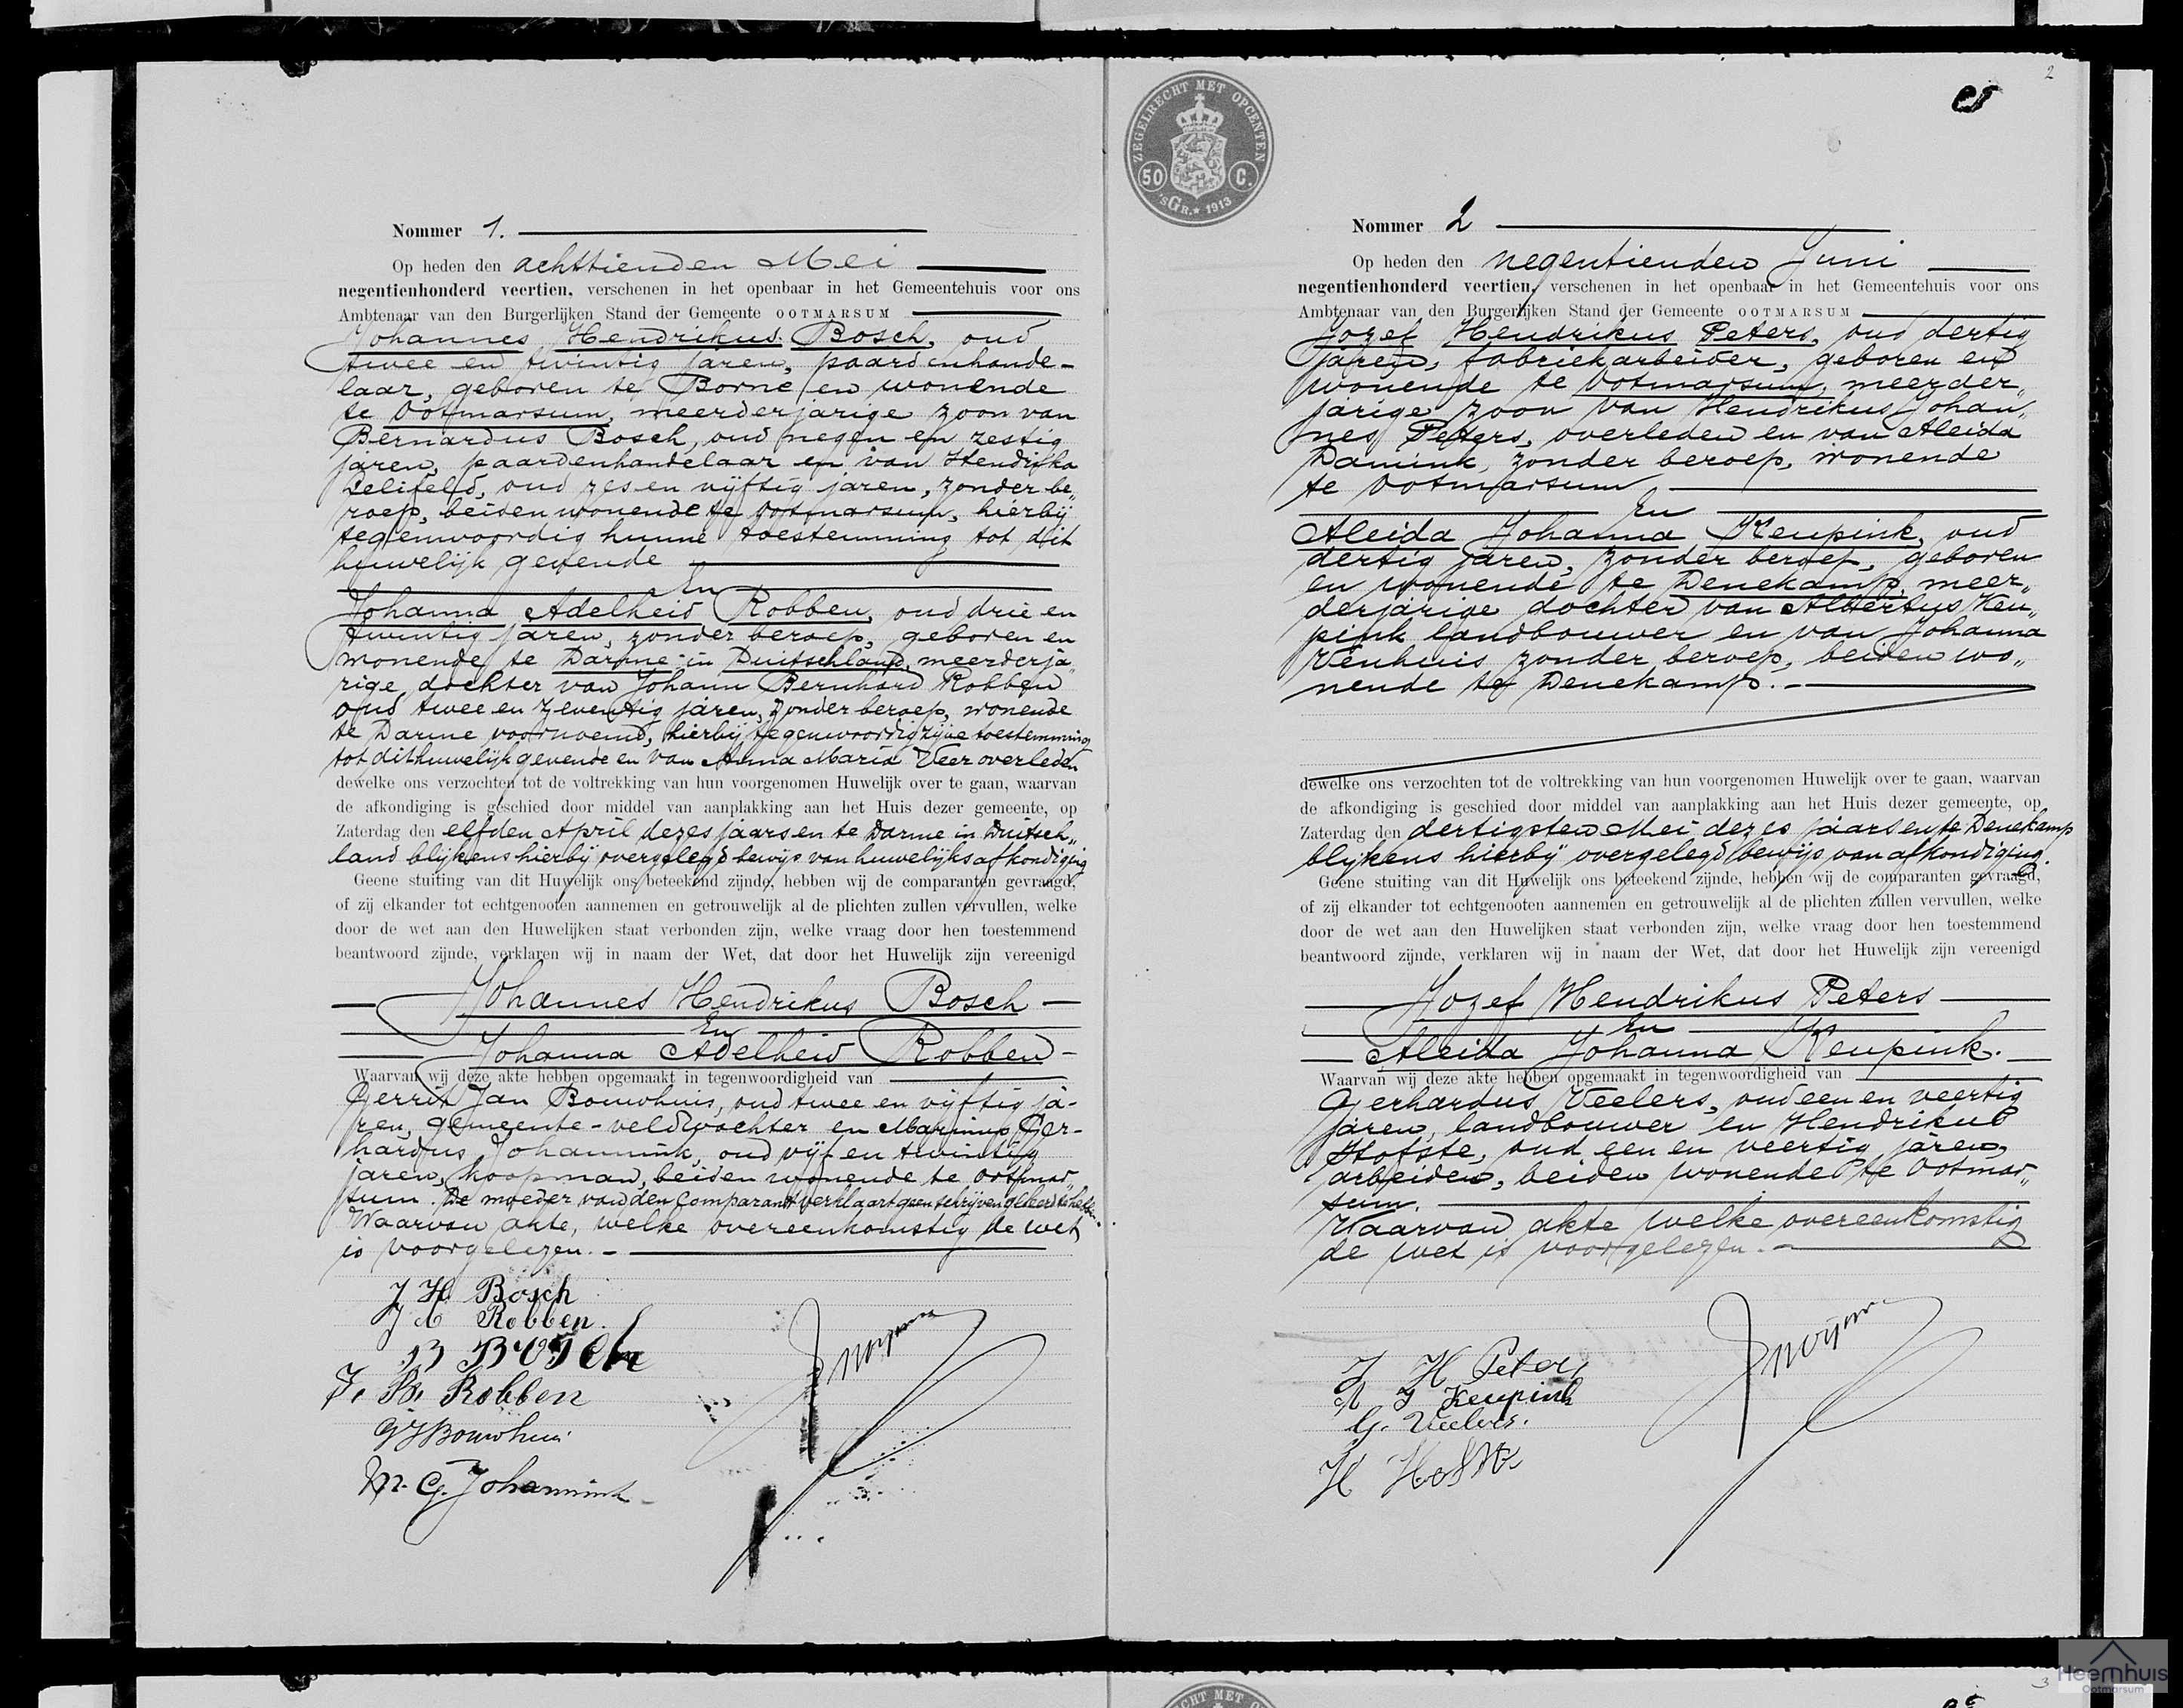 Nommer 1.
Op heden den achttienden Mei
negentienhonderd veertien, verschenen in het openbaar in het Gemeentehuis voor ons
Ambtenaar van den Burgerlijken Stand der Gemeente OOTMARSUM
Johannes Hendrikus Bosch, oud
twee en twintig jaren, paardenhande-
laar, geboren te Borne en wonende
te Ootmarsum, meerderjarige zoon van
Bernardus Bosch, oud negen en zestig
jaren, paardenhandelaar en van Hendrika
oud zes en vijftig jaren, zonder be„
roep, beiden wonende te Ootmarsum, hierbij
tegenwoordig hunne toestemming tot dit
huwelijk gevende
En
Johanna Adelheid Robben, oud drie en
twintig jaren, zonder beroep, geboren en
wonende te Darme in Duitschland, meerderja„
rige dochter van Johann Bernhard Robben
oud twee en zeventig jaren, zonder beroep, wonende
te Darme voornoemd, hierbij tegenwoordig zijne toestemming
tot dit huwelijk gevende en van Anna Maria Veer overleden
dewelke ons verzochten tot de voltrekking van hun voorgenomen Huwelijk over te gaan, waarvan
de afkondiging is geschied door middel van aanplakking aan het Huis dezer gemeente, op
Zaterdag den elfden April dezes jaars en te Darme in Duitsch„
land blijkens hierbij overgelegd bewijs van huwelijksafkondiging
Geene stuiting van dit Huwelijk ons beteekend zijnde, hebben wij de comparanten gevraagd,
of zij elkander tot echtgenooten aannemen en getrouwelijk al de plichten zullen vervullen, welke
door de wet aan den Huwelijken staat verbonden zijn, welke vraag door hen toestemmend
beantwoord zijnde, verklaren wij in naam der Wet, dat door het Huwelijk zijn vereenigd
Johannes Hendrikus Bosch
En
Johanna Adelheid Robben
Waarvan wij deze akte hebben opgemaakt in tegenwoordigheid van
Gerrit Jan Bouwhuis, oud twee en vijftig ja-
ren, gemeente-veldwachter en Marinus Ger-
hardus Johannink, oud vijf en twintig
jaren, koopman, beiden wonende te Ootmar„
sum. De moeder van den Comparant verklaart geen schrijven geleerd te hebben.
Waarvan akte, welke overeenkomstig de wet
is voorgelezen.
J H Bosch
J A Robben.
B BOSch
J. B. Robben
GJ Bouwhuis
M. G. Johannink
2
ZEGELRECHT MET OPCENTEN
50 C.
'sGR. 1913
Nommer 2
Op heden den negentienden Juni
negentienhonderd veertien, verschenen in het openbaar in het Gemeentehuis voor ons
Ambtenaar van den Burgerlijken Stand der Gemeente OOTMARSUM
Jozef Hendrikus Peters, oud dertig
jaren, fabriekarbeider, geboren en
wonende te Ootmarsum, meerder„
jarige zoon van Hendrikus Johan„
nes Peters, overleden en van Aleida
Damink, zonder beroep, wonende
te Ootmarsum
En
Aleida Johanna Keupink, oud
dertig jaren, zonder beroep, geboren
en wonende te Denekamp, meer„
derjarige dochter van Albertus Keu„
pink landbouwer en van Johanna
Venhuis zonder beroep, beiden wo„
nende te Denekamp.
dewelke ons verzochten tot de voltrekking van hun voorgenomen Huwelijk over te gaan, waarvan
de afkondiging is geschied door middel van aanplakking aan het Huis dezer gemeente, op
Zaterdag den dertigsten Mei dezes jaars en te Denekamp
blijkens hierbij overgelegd bewijs van afkondiging.
Geene stuiting van dit Huwelijk ons beteekend zijnde, hebben wij de comparanten gevraagd,
of zij elkander tot echtgenooten aannemen en getrouwelijk al de plichten zullen vervullen, welke
door de wet aan den Huwelijken staat verbonden zijn, welke vraag door hen toestemmend
beantwoord zijnde, verklaren wij in naam der Wet, dat door het Huwelijk zijn vereenigd
Jozef Hendrikus Peters
En
Aleida Johanna Keupink.
Waarvan wij deze akte hebben opgemaakt in tegenwoordigheid van
Gerhardus Veelers, oud een en veertig
jaren, landbouwer en Hendrikus
Hofste, oud een en veertig jaren,
arbeider, beiden wonende te Ootmar„
sum.
Waarvan akte welke overeenkomstig
de wet is voorgelezen.
J H Peters
A J Keupink
G. Veelers.
H Hofste
3
CHT MET O
Heemhuis
Ootmarsum